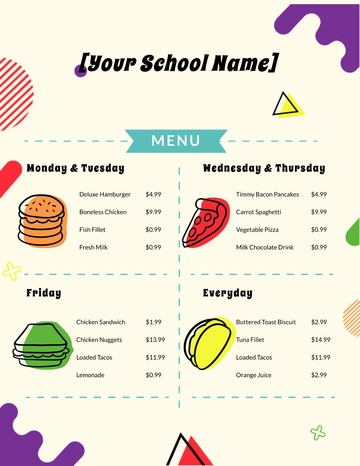 [Your School Name]
MENU
Monday & Tuesday
Deluxe Hamburger $4.99
Boneless Chicken $9.99
Fish Fillet $0.99
Fresh Milk $0.99
Wednesday & Thursday
Timmy Bacon Pancakes $4.99
Carrot Spaghetti $9.99
Vegetable Pizza $0.99
Milk Chocolate Drink $0.99
Friday
Chicken Sandwich $1.99
Chicken Nuggets $13.99
Loaded Tacos $11.99
Lemonade $0.99
Everyday
Buttered Toast Biscuit $2.99
Tuna Fillet $14.99
Loaded Tacos $11.99
Orange Juice $2.99